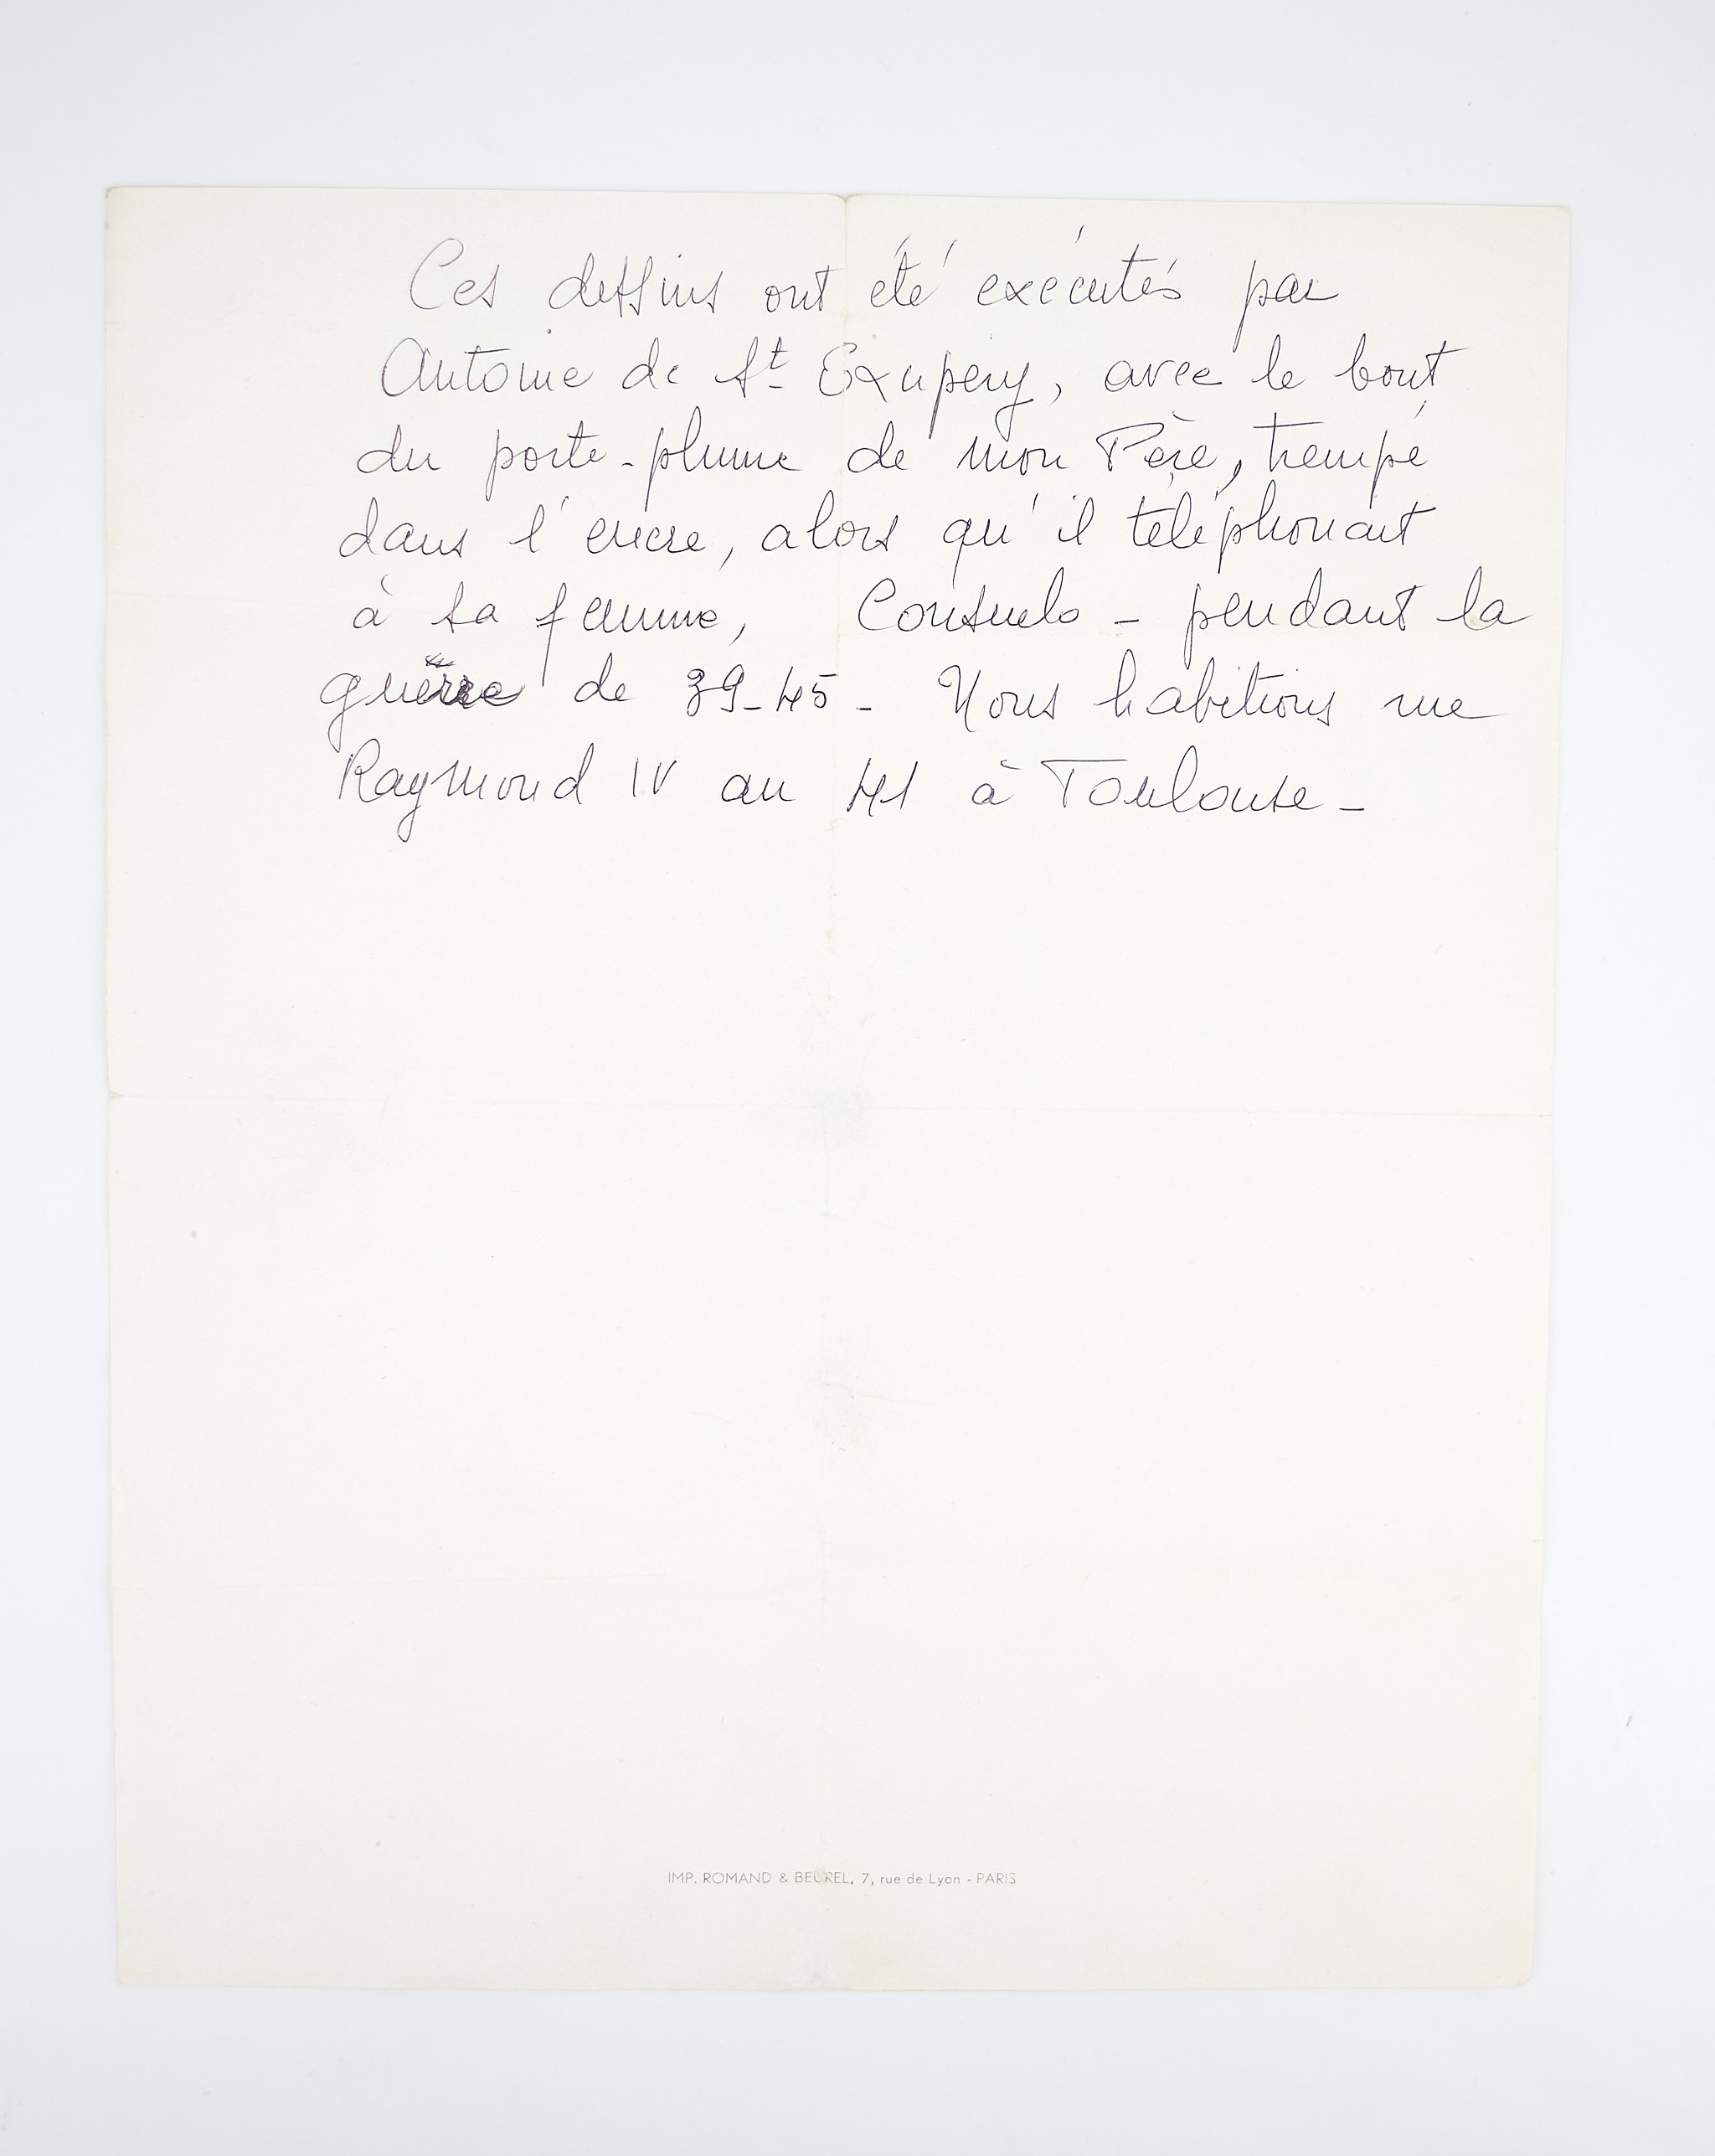 Ces dessins ont été exécutés par
Antoine de St Exupery, avec le bout
du porte-plume de mon Père, trempé
dans l'encre, alors qu'il téléphonait
à sa femme, Consuelo - pendant la
guerre de 39-45 - Nous habitions rue
Raymond IV au 41 à Toulouse -
IMP. ROMAND & BEUREL, 7, rue de Lyon - PARIS